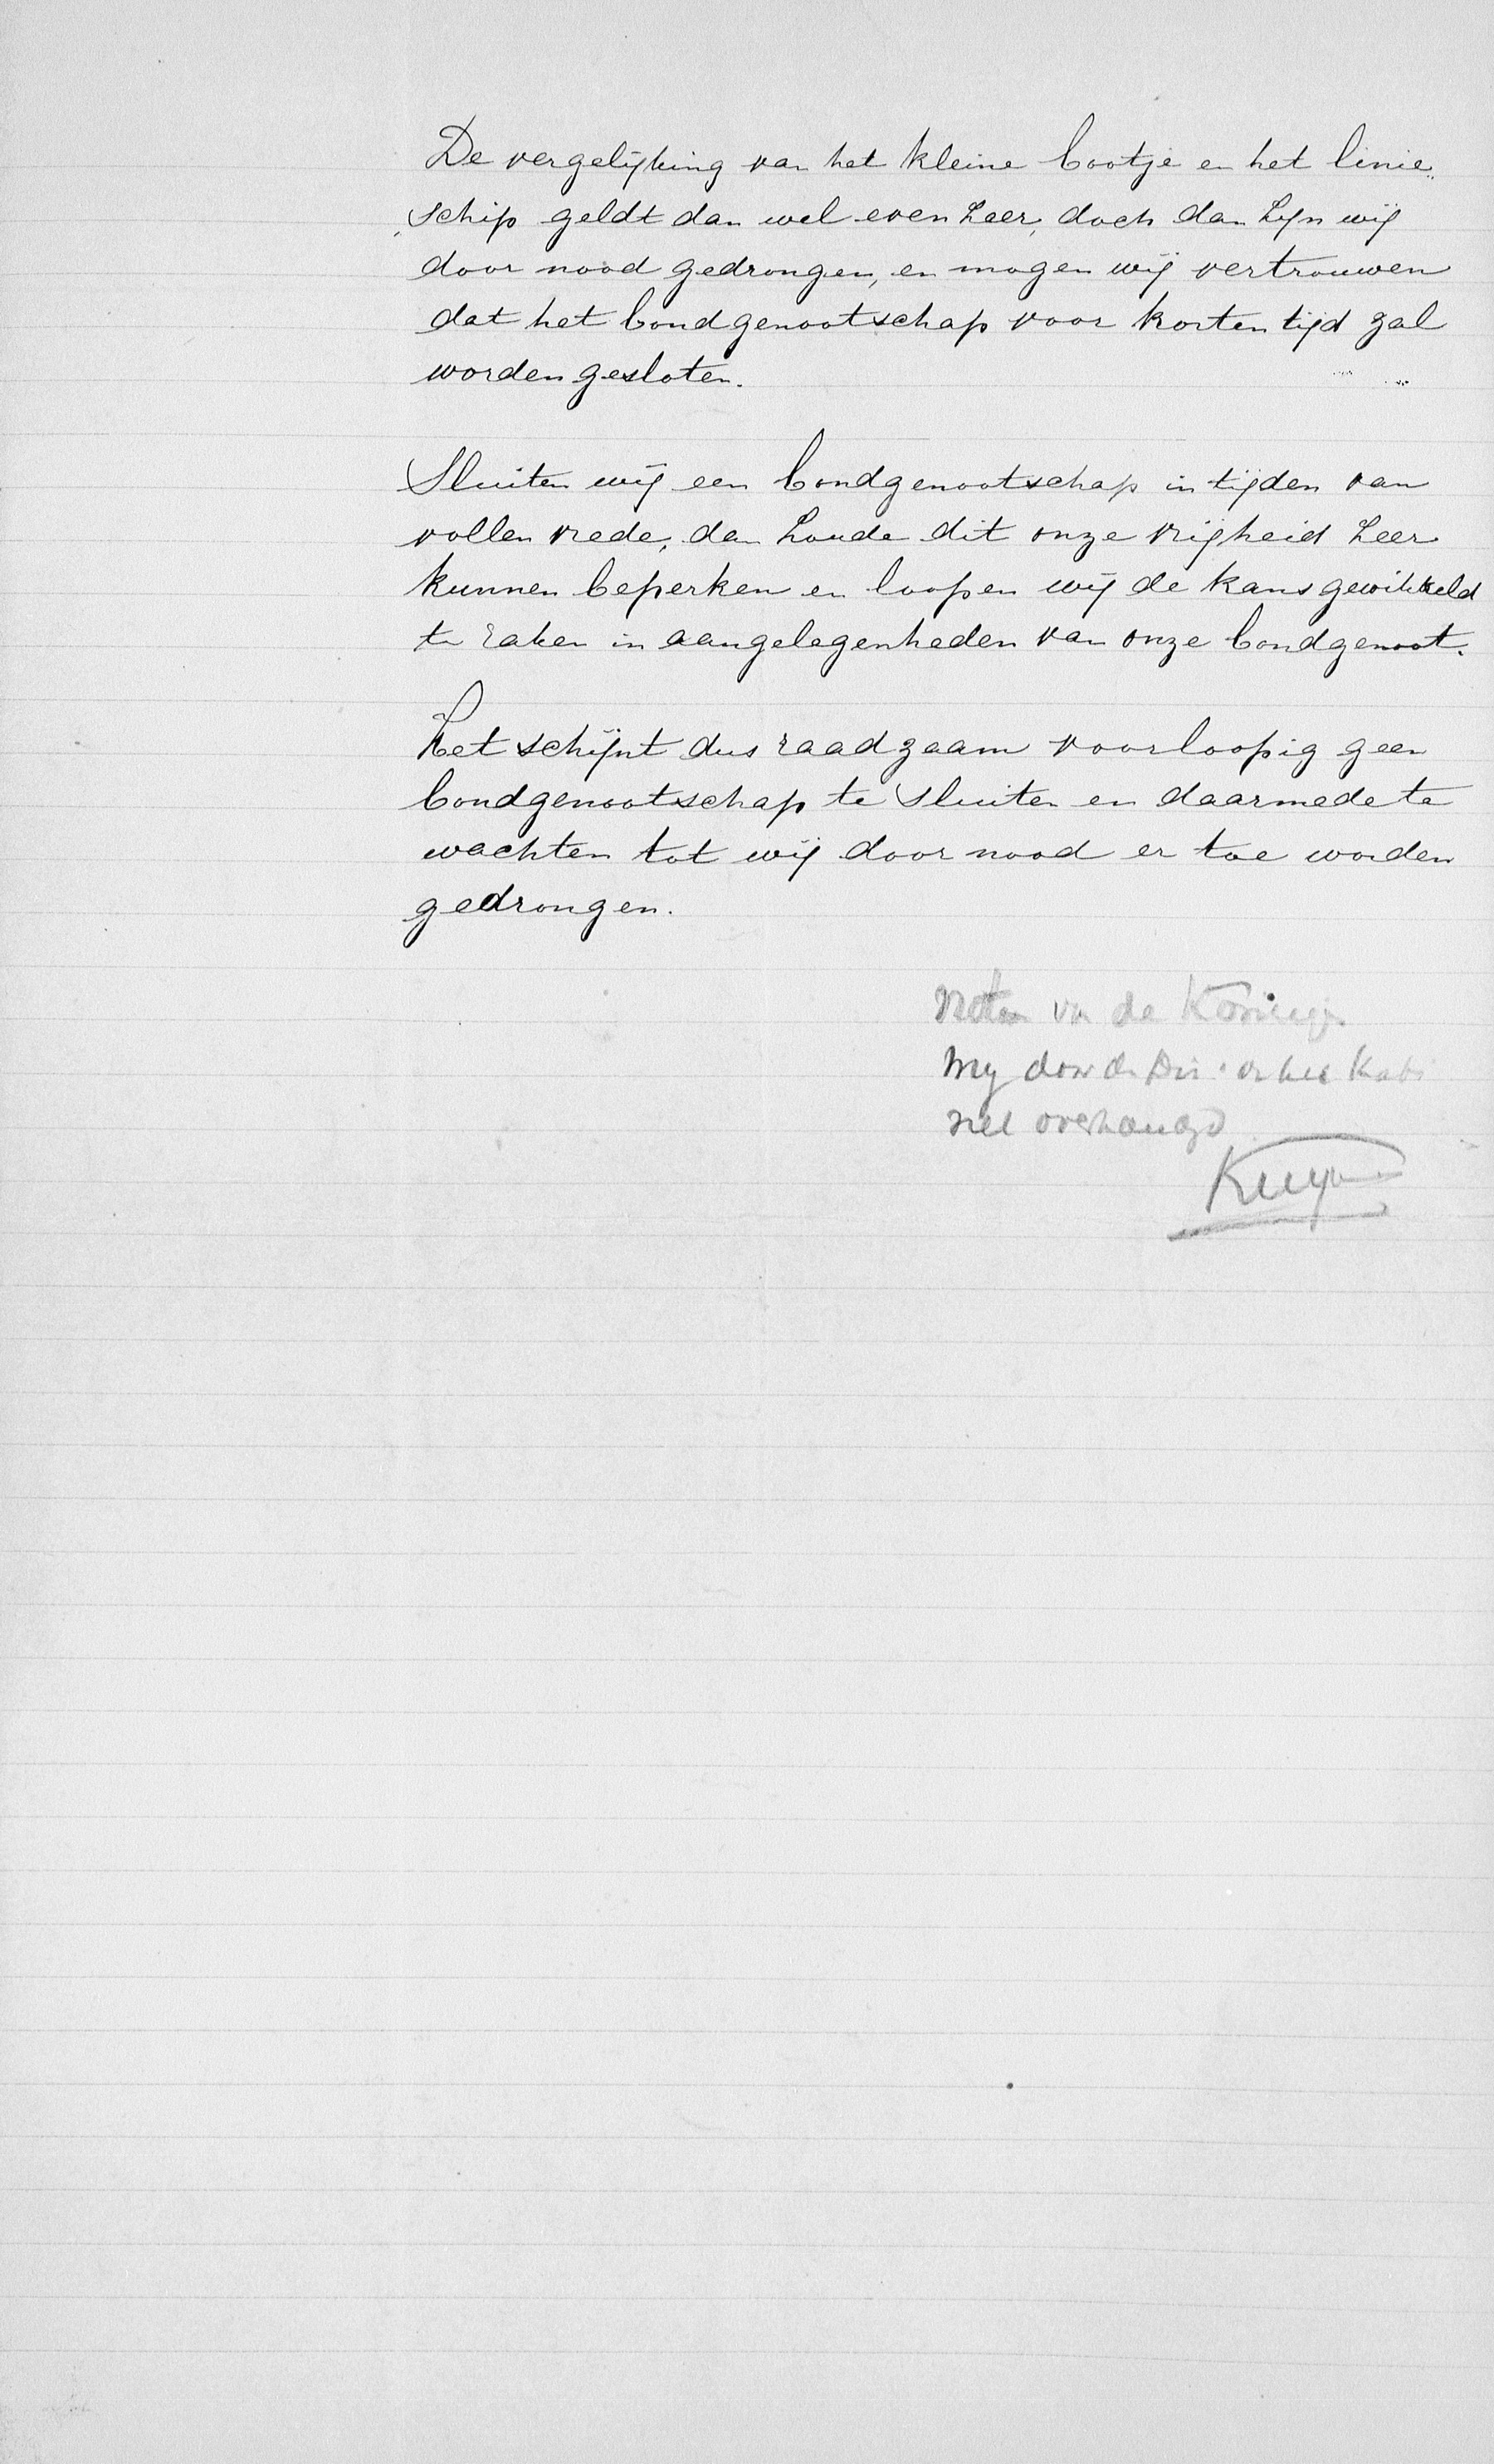 De vergelijking van het kleine bootje en het linie„
„schip geldt dan wel even zeer, doch dan zijn wij
door nood gedrongen, en mogen wij vertrouwen
dat het bondgenootschap voor korten tijd zal
worden gesloten.
Sluiten wij een bondgenootschap in tijden van
vollen vrede, dan zoude dit onze vrijheid zeer
kunnen beperken en loopen wij de kans gewikkeld
te raken in aangelegenheden van onze bondgenoot.
Het schijnt dus raadzaam voorloopig geen
bondgenootschap te sluiten en daarmede te
wachten tot wij door nood er toe worden
gedrongen.
Noten van de Koningin
My door de Dir. v. het Kabi
net overhandigd
Kuyper